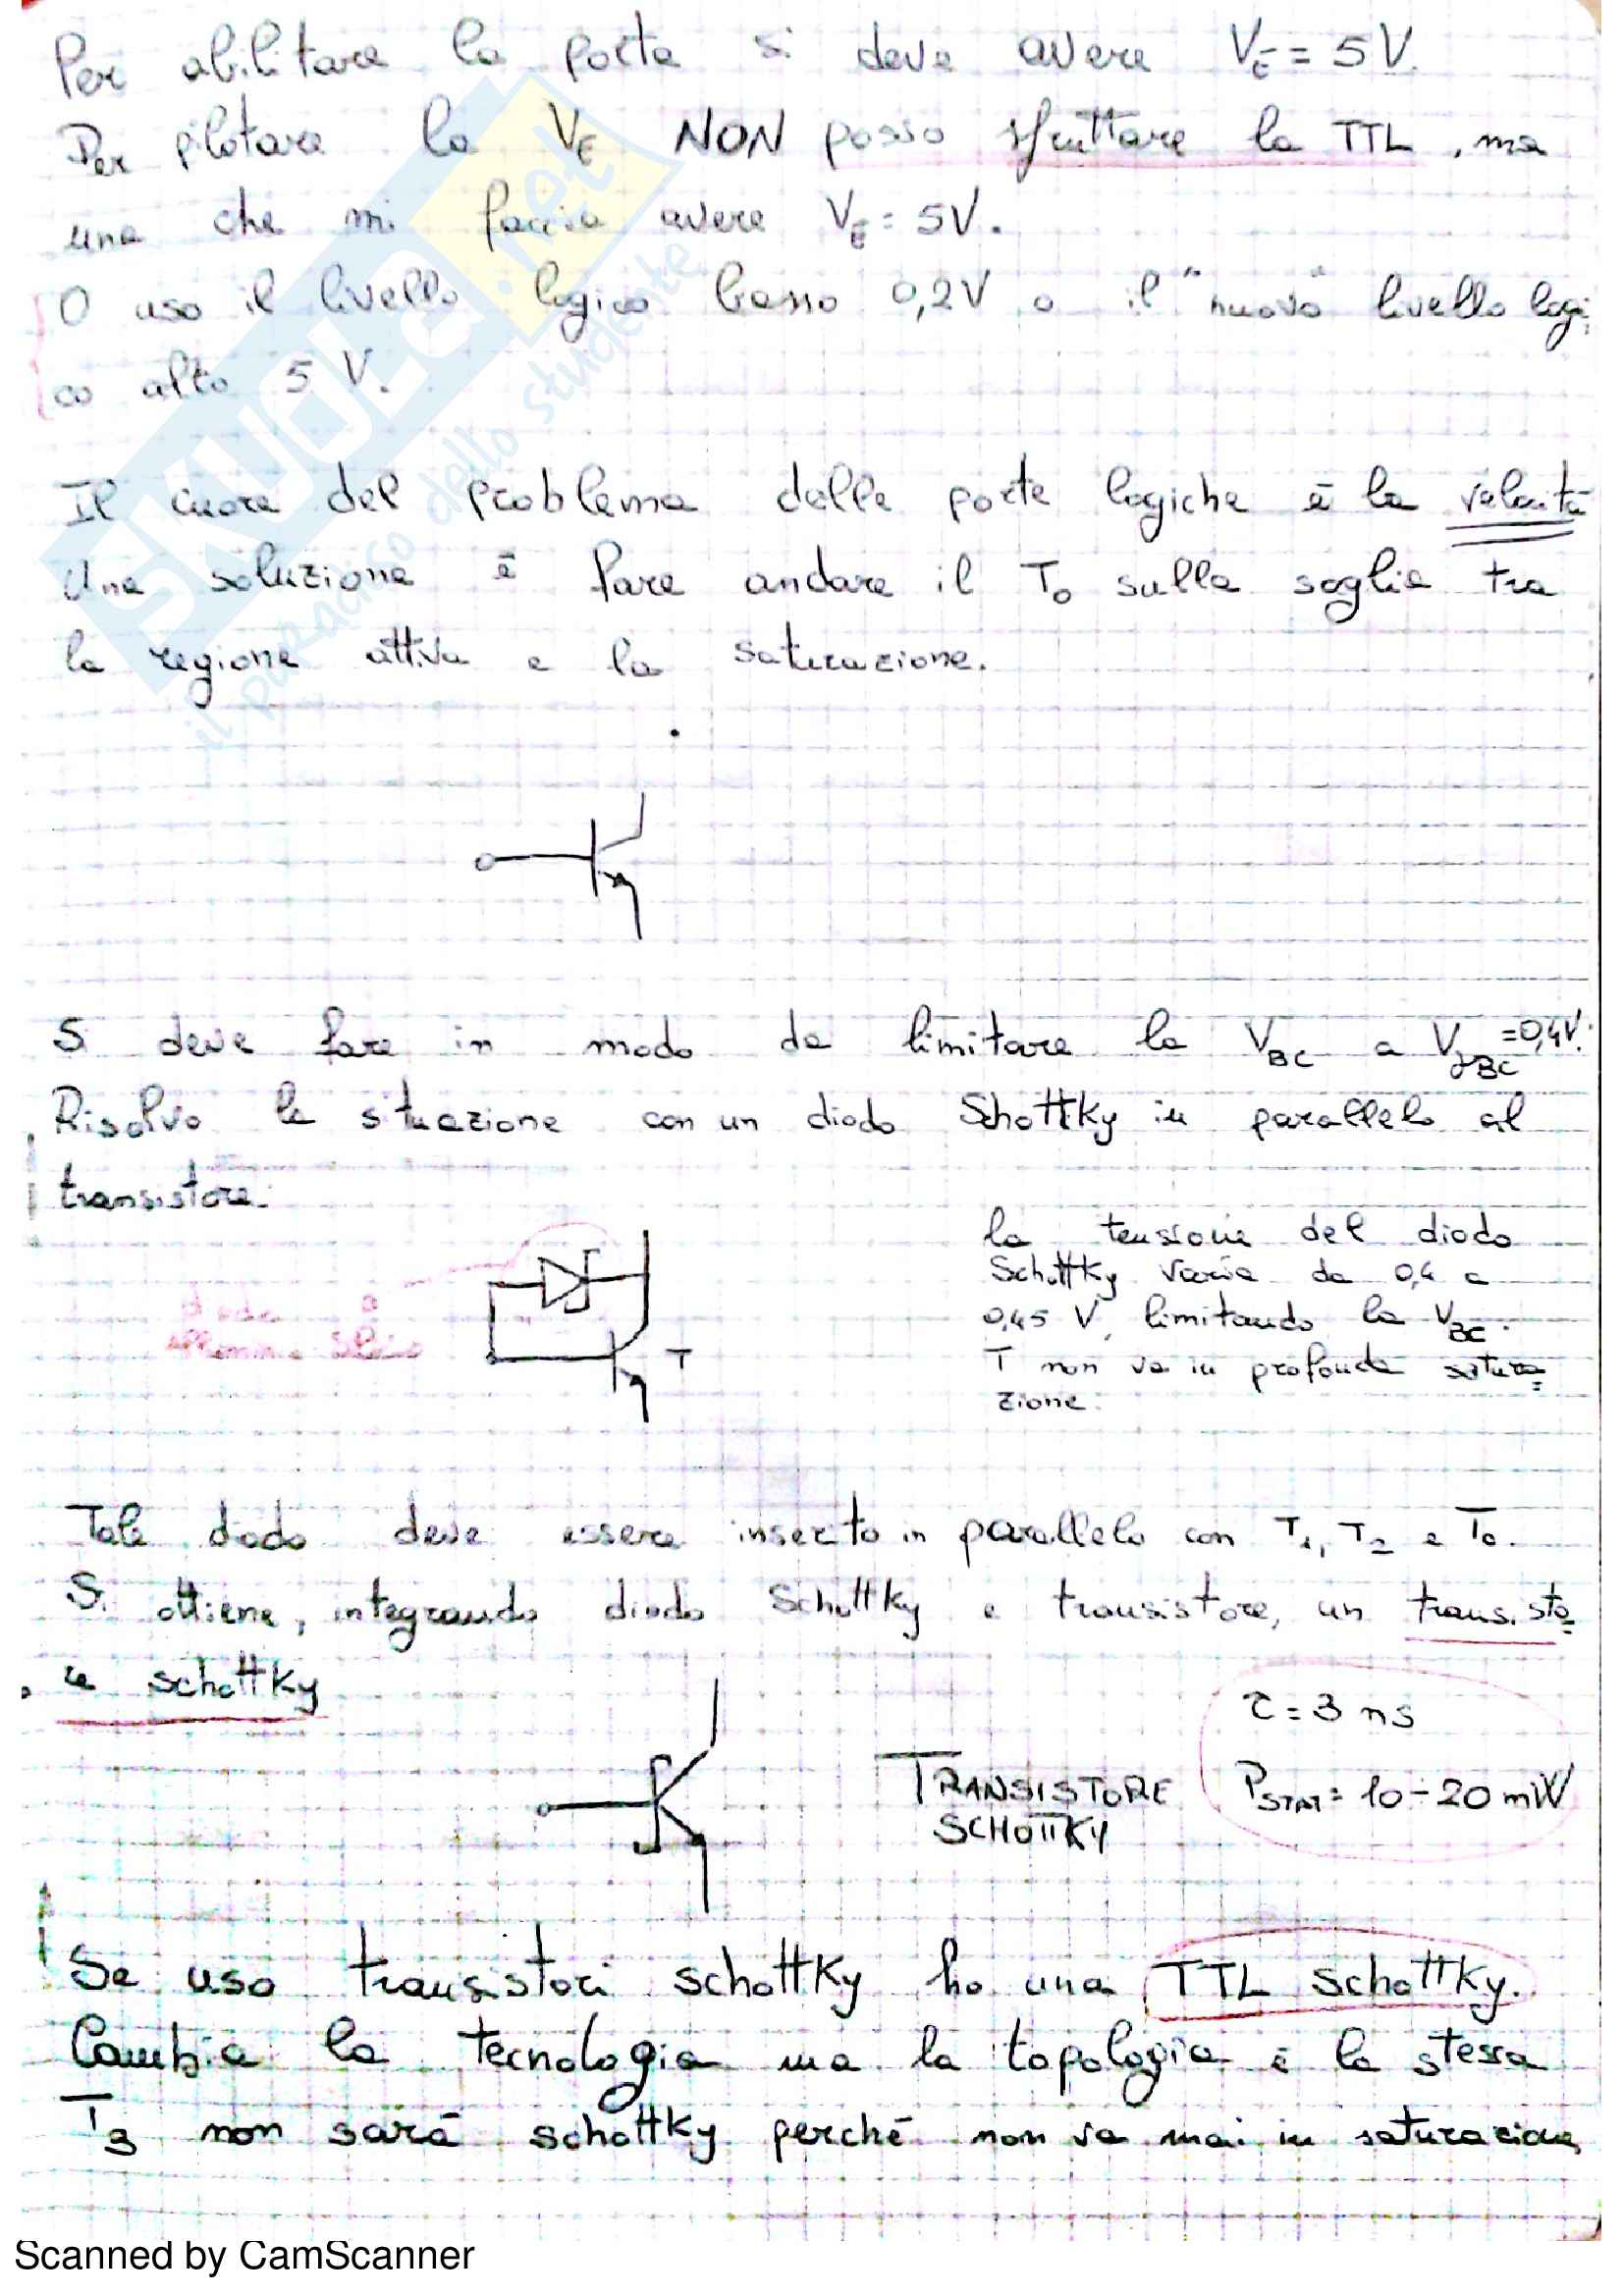 Per abilitare la porta si deve avere VE = 5 V.
Per pilotare la VE NON posso sfruttare la TTL, ma
una che mi faccia avere VE = 5V.
O uso il livello logico basso 0,2V o il "nuovo" livello logi
co alto 5 V.
Il cuore del problema delle porte logiche è la velocità
Una soluzione è fare andare il T0 sulla soglia tra
la regione attiva e la saturazione.
Si deve fare in modo da limitare la VBC a VγBC = 0,4V.
Risolvo la situazione con un diodo Schottky in parallelo al
transistore.
la tensione del diodo
Schottky varia da 0,4 a
0,45 V, limitando la VBC.
T non va in profonda satura
zione.
diodo a
T
Tale diodo deve essere inserito in parallelo con T1, T2 e T0.
Si ottiene, integrando diodo Schottky e transistore, un transisto
re schottky
τ = 3 ns
TRANSISTORE
SCHOTTKY
PSTAT = 10-20 mW
Se uso transistori schottky ho una TTL schottky.
Cambia la tecnologia ma la topologia è la stessa
T3 non sarà schottky perché non va mai in saturazione
SKUOLA.net
il paradiso dello studente
Scanned by CamScanner